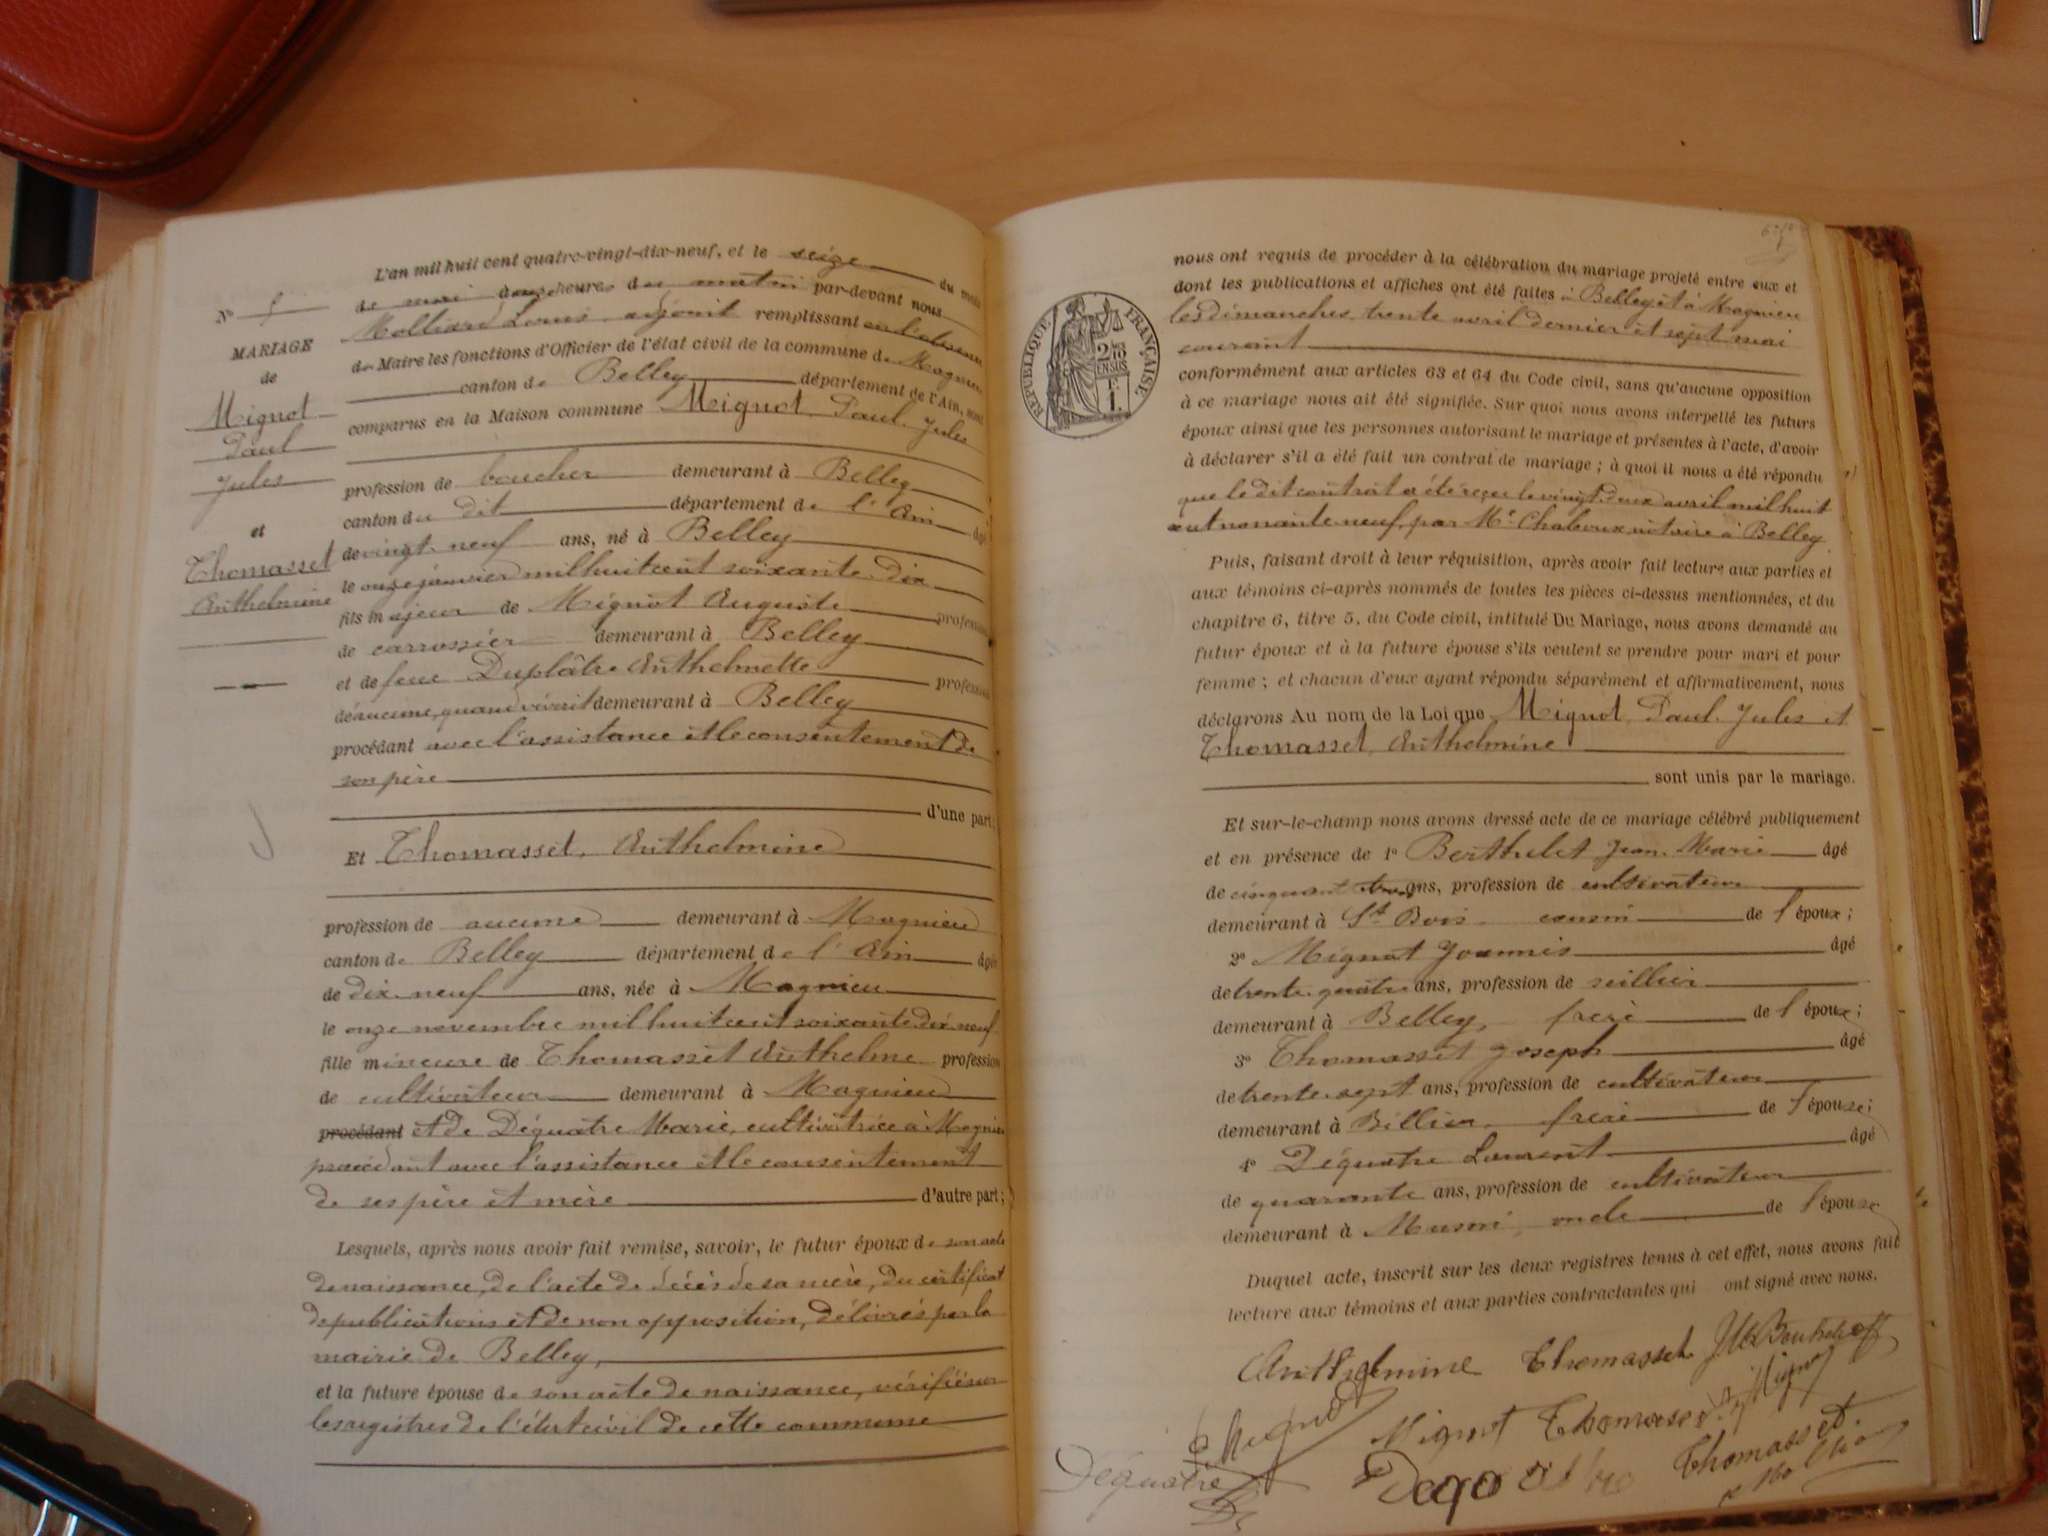 L'an mil huit cent quatre-vingt-dix-neuf, et le seize du mois
de mai heures du matin par-devant nous
Molliard Louis adjoint remplissant en l'absence
de Maire les fonctions d'Officier de l'état civil de la commune de Magnieu
canton de Belley département de l'Ain, sont
comparus en la Maison commune Mignot Paul Jules
N°
MARIAGE
de
Mignot
Paul
Jules
et
Thomasset
Anthelmine
profession de boucher demeurant à Belley
canton du dit département de l'Ain âgé
de vingt neuf ans, né à Belley
le onze janvier mil huit cent soixante dix
fils majeur de Mignot Auguste profession
de carrossier demeurant à Belley
et de feue Duplâtre Anthelmette profession
de aucune, quand vivait demeurant à Belley
procédant avec l'assistance et le consentement de
son père
d'une part;
Et Thomasset, Anthelmine
profession de aucune demeurant à Magnieu
canton de Belley département de l'Ain âgée
de dix neuf ans, née à Magnieu
le onze novembre mil huit cent soixante dix neuf
fille mineure de Thomasset Anthelme profession
de cultivateur demeurant à Magnieu
procédant et de Déquatre Marie, cultivatrice à Magnieu
procédant avec l'assistance et le consentement
de ses père et mère d'autre part;
Lesquels, après nous avoir fait remise, savoir, le futur époux de son acte
de naissance, de l'acte de décès de sa mère, du certificat
de publications et de non opposition, délivrés par la
mairie de Belley,
et la future épouse de son acte de naissance, vérifié sur
les registres de l'état civil de cette commune
nous ont requis de procéder à la célébration du mariage projeté entre eux et
dont les publications et affiches ont été faites à Belley et à Magnieu
les dimanches trente avril dernier et sept mai
courant
RÉPUBLIQUE FRANÇAISE
2/10
EN SUS
1 F.
conformément aux articles 63 et 64 du Code civil, sans qu'aucune opposition
à ce mariage nous ait été signifiée. Sur quoi nous avons interpellé les futurs
époux ainsi que les personnes autorisant le mariage et présentes à l'acte, d'avoir
à déclarer s'il a été fait un contrat de mariage ; à quoi il nous a été répondu
que le dit contrat a été reçu le vingt deux avril mil huit
cent nonante neuf, par Me Chaboux, notaire à Belley
Puis, faisant droit à leur réquisition, après avoir fait lecture aux parties et
aux témoins ci-après nommés de toutes les pièces ci-dessus mentionnées, et du
chapitre 6, titre 5, du Code civil, intitulé Du Mariage, nous avons demandé au
futur époux et à la future épouse s'ils veulent se prendre pour mari et pour
femme ; et chacun d'eux ayant répondu séparément et affirmativement, nous
déclarons Au nom de la Loi que Mignot, Paul Jules et
Thomasset, Anthelmine
sont unis par le mariage.
Et sur-le-champ nous avons dressé acte de ce mariage célébré publiquement
et en présence de 1° Berthelet Jean Marie âgé
de cinquante ans, profession de cultivateur
demeurant à St Bois, cousin de l'époux ;
2° Mignot Joannis âgé
de trente quatre ans, profession de seillier
demeurant à Belley, frère de l'époux ;
3° Thomasset Joseph âgé
de trente sept ans, profession de cultivateur
demeurant à Billieu, frère de l'épouse ;
4° Déquatre Laurent âgé
de quarante ans, profession de cultivateur
demeurant à Musin, oncle de l'épouse
Duquel acte, inscrit sur les deux registres tenus à cet effet, nous avons fait
lecture aux témoins et aux parties contractantes qui ont signé avec nous.
Anthelmine Thomasset
Mignot
Mignot Thomasset
Déquatre
Thomasset